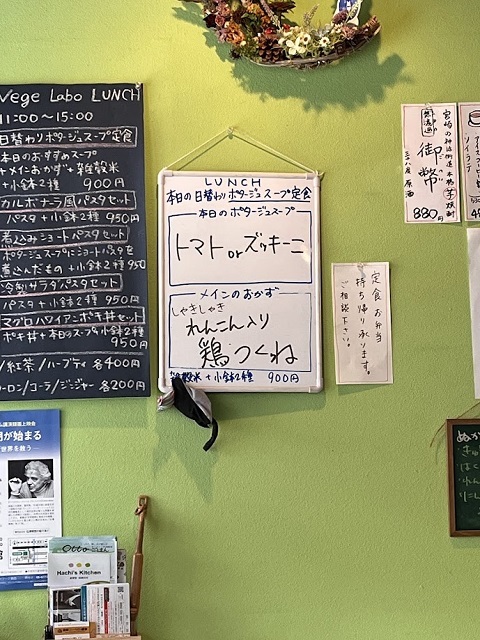 Vege Labo LUNCH
11:00〜15:00
日替わりポタージュスープ定食
本日のおすすめスープ
+メインおかず+雑穀米
+小鉢2種 900円
カルボナーラ風パスタセット
パスタ+小鉢2種 950円
煮込みショートパスタセット
ポタージュスープにショートパスタを
煮込んだもの+小鉢2種 950
冷製サラダパスタセット
パスタ+小鉢2種 950円
マグロハワイアンポキ丼セット
ポキ丼+本日のスープ小鉢2種
950円
/紅茶/ハーブティ 各400円
ーロン/コーラ/ジンジャー 各200円
LUNCH
本日の日替わりポタージュスープ定食
本日のポタージュスープ
トマト or ズッキーニ
メインのおかず
しゃきしゃき
れんこん入り
鶏つくね
雑穀米+小鉢2種 900円
定食お弁当
持ち帰り承ります。
ご相談下さい。
御幣
880円
ぬか
きゅ
はく
が始まる
世界を救う
Otto
Hachi's Kitchen